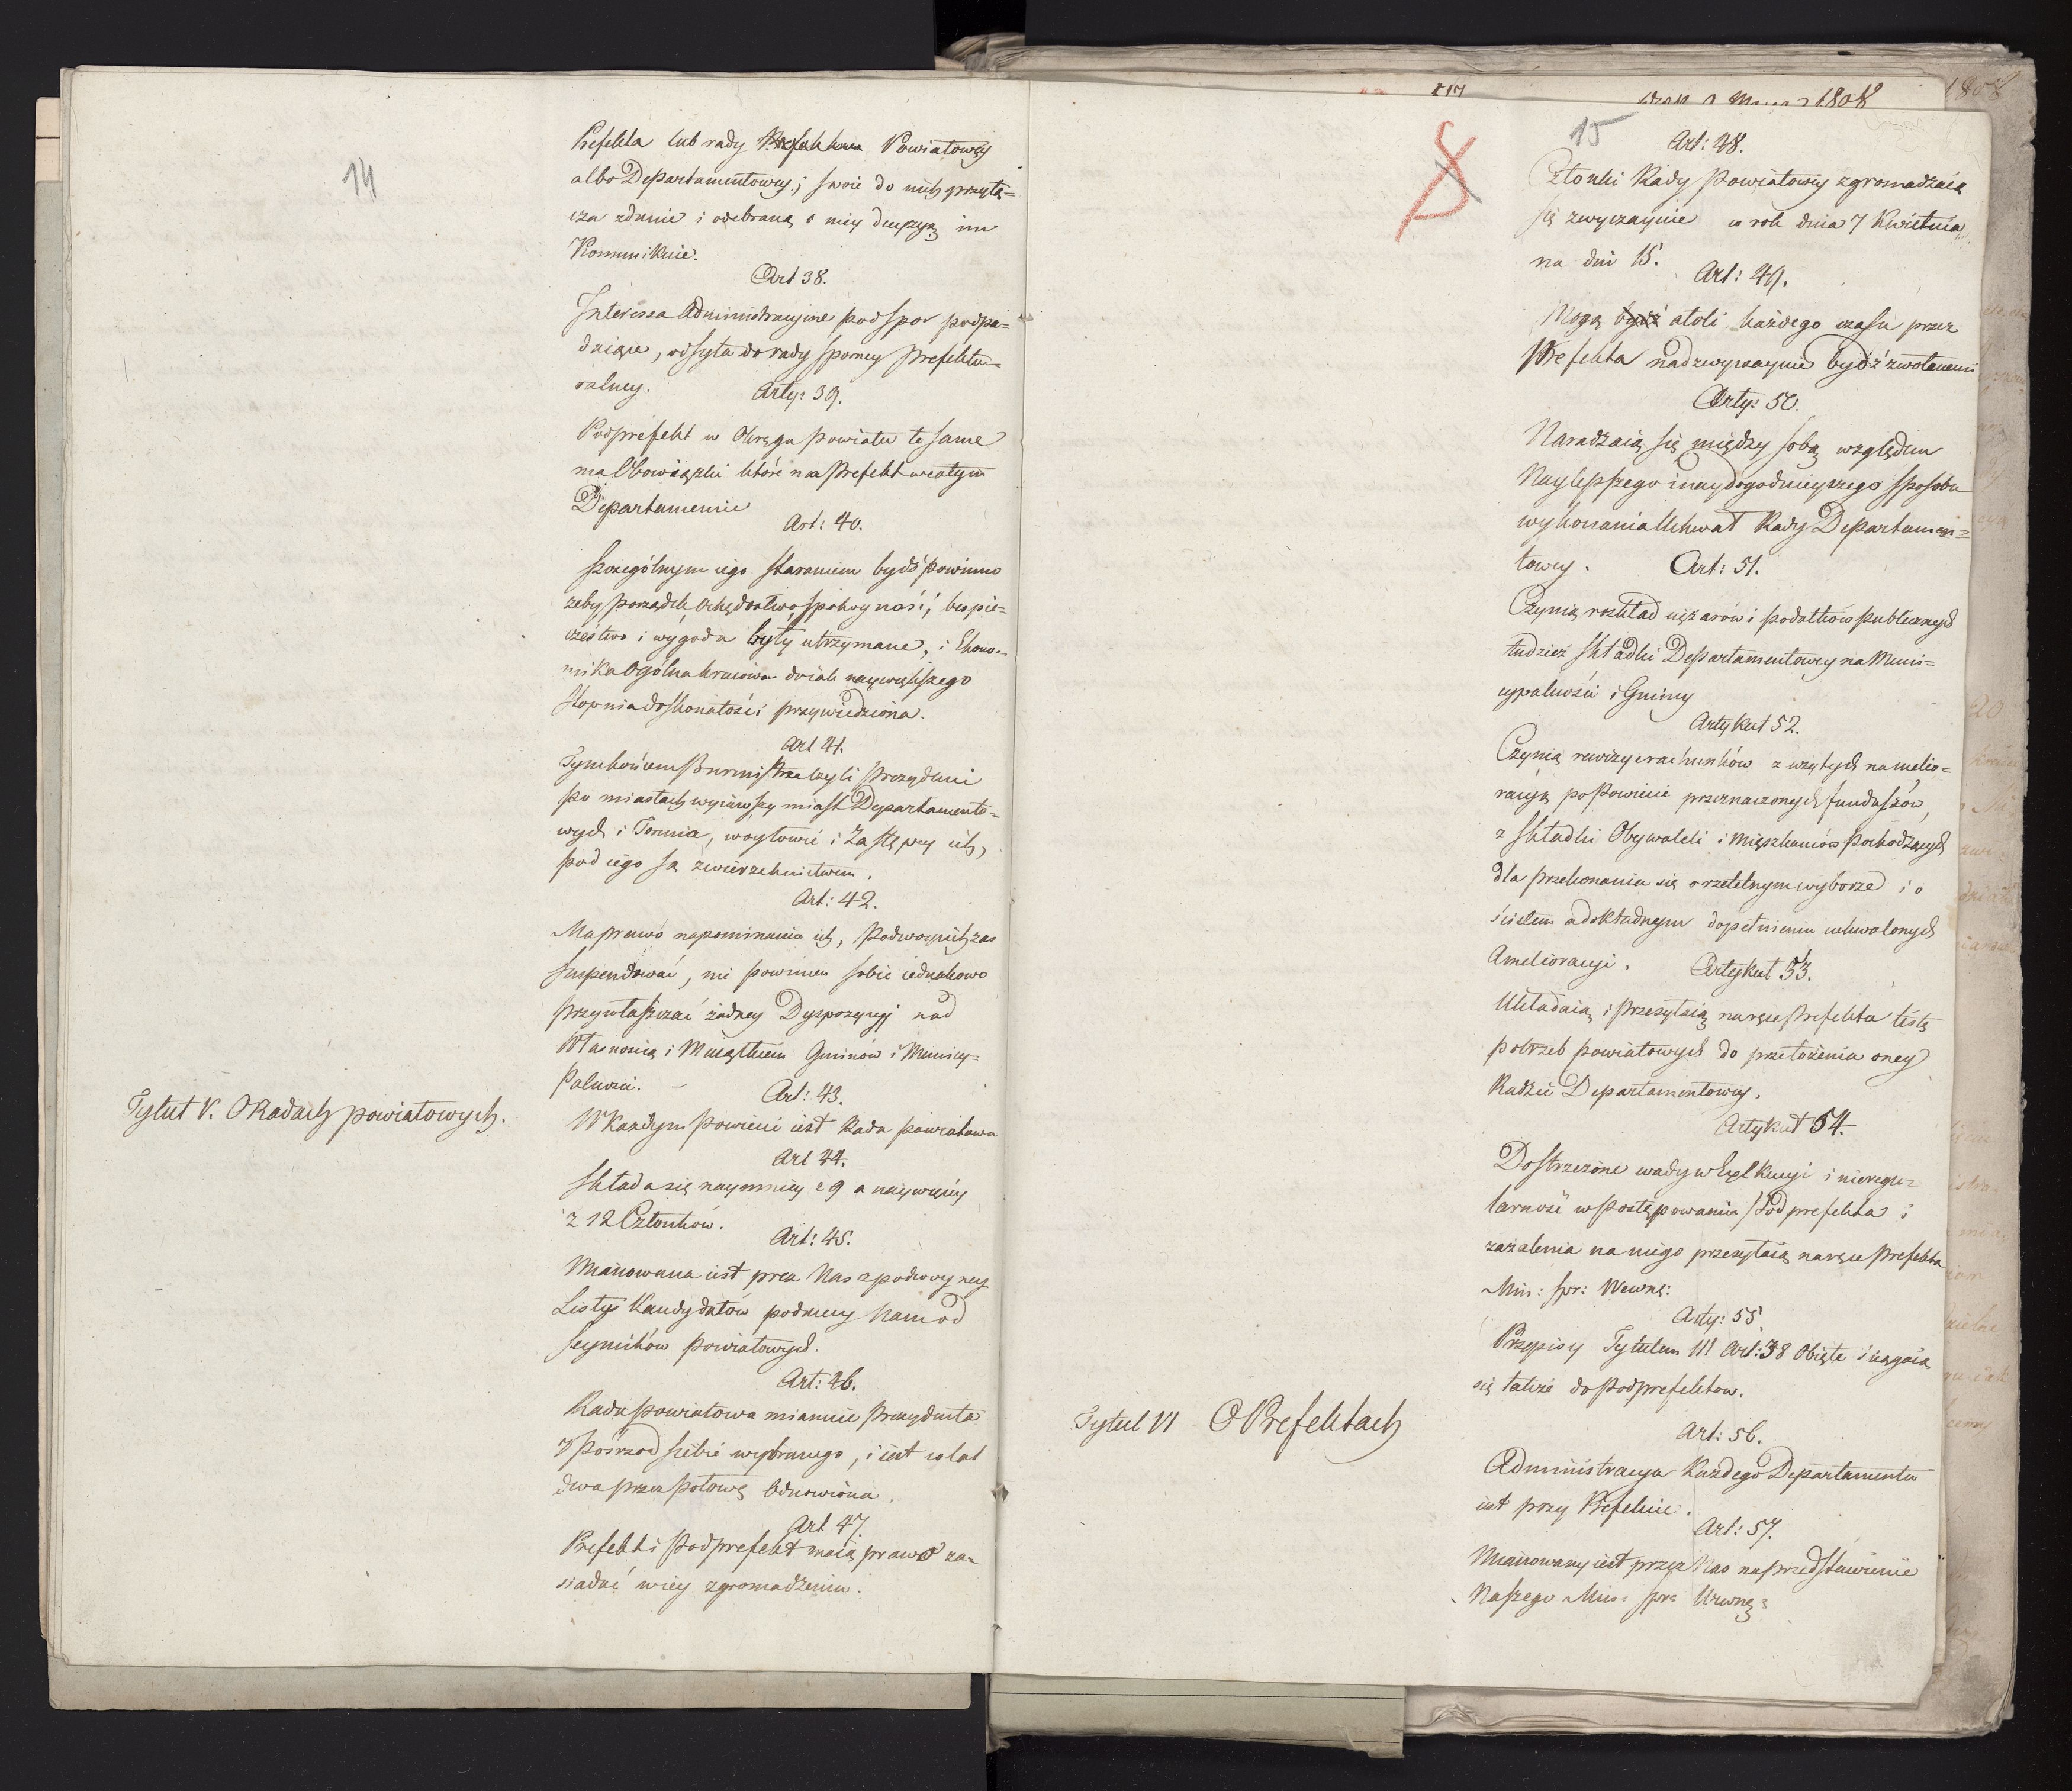 14
Prefekta lub rady Powiatowey
albo Departamentowey; swoie do nich przyłą=
cza zdanie i odebraną o niey decyzyą im
Kommunikuie.
Art 38.
Interessa Administracyine pod spor podpa=
daiące, odsyła do rady sporney Prefektu=
ralney.
Arty: 39.
Podprefekt w Okręgu Powiatu te same
ma Obowiązki które ma Prefekt w całym
Departamencie
Art: 40.
Szczególnym iego staraniem bydź powinno
żeby porządek Ochędostwo, spokoyność, bespie=
czeństwo i wygoda były utrzymane, i Ekono=
mika Ogólna kraiowa do iak naywiększego
stopnia doskonałości przywiedziona.
Art 41.
Tym końcem Burmistrze czyli Prezydenci
po miastach wyiąwszy miast Departamento=
wych i Torunia, woytowie i Zastępcy ich,
pod iego są zwierzchnictwem.
Art: 42.
Ma prawo napominania ich, Podwoynich zas
suspendować, nie powinien sobie iednakowo
przywłaszczać żadney Dyspozycyi nad
Własnością i Maiątkiem Gminów i Municy=
palności. –
Tytuł V. O Radach powiatowych.
Art: 43.
W Każdym Powiecie iest Rada Powiatowa
Art 44.
Składa się naymniey z 9 a naywięcey
z 12 Członków.
Art: 45.
Mianowana iest przez Nas z podwoyney
Listy Kandydatów podaney Nam od
Seymików powiatowych.
Art: 46.
Rada Powiatowa mianuie Prezydenta
z Pośrzod siebie wybranego, i iest co lat
dwa przez połowę Odnowiona.
Art 47.
Prefekt i Podprefekt maią prawo za=
siadać w iey zgromadzeniu.
1808
1808
15
Art: 48.
Członki Rady Powiatowey zgromadzaią
się zwyczaynie w rok dnia 7 Kwietnia
na dni 15.
Art: 49.
Mogą bydź atoli każdego czasu przez
Prefekta nadzwyczaynie bydź zwołanemi
Arty: 50.
Naradzaią się między sobą względem
Naylepszego i naydogodnieyszego sposobu
wykonania Uchwał Rady Departamen=
towey.
Art: 51.
Czynią rozkład ciężarów i podatków publicznych
tudzież składki Departamentowey na Muni=
cypalności i Gminy
Artykuł 52.
Czynią rewizye rachunków z użytych na melio=
racyą po Powiecie przeznaczonych funduszów,
z składki Obywateli i mieszkańców Pochodzących
dla przekonania się o rzetelnym wyborze i o
ścisłem a dokładnym dopełnieniu uchwalonych
Amelioracyi.
Artykuł 53.
Układaią i Przesyłaią na ręce Prefekta listę
potrzeb powiatowych do przełożenia oney
Radzie Departamentowey.
Artykuł 54.
Dostrzeżone wady w Exekucyi i nieregu=
larność w Postępowaniu Podprefekta i
zażalenia na niego przesyłaią na ręce Prefekta
Min: spr: Wewnę:
Arty: 55.
Przepisy Tytułem III Art: 38 Obięte ściągaią
się także do Podprefektow.
Tytuł VI O Prefektach
Art: 56.
Administracya Każdego Departamentu
iest przy Prefekcie.
Art: 57.
Mianowany iest przez Nas na przedstawienie
Naszego Min: spr: Wewnę: